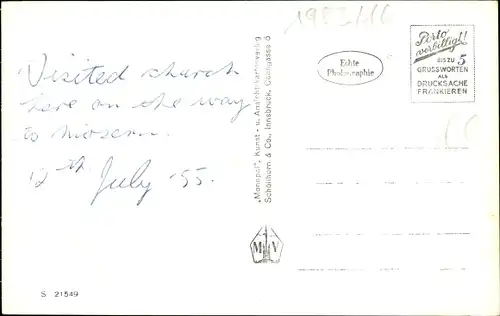 Visited church
here on the way
to Mösern.
12th July '55.
S 21549
"Monopol", Kunst- u. Ansichtskartenverlag
Schöllhorn & Co., Innsbruck, Colingasse
MV
Echte
Photographie
Porto
verbilligt!
BIS ZU 5
GRUSSWORTEN
ALS
DRUCKSACHE
FRANKIEREN